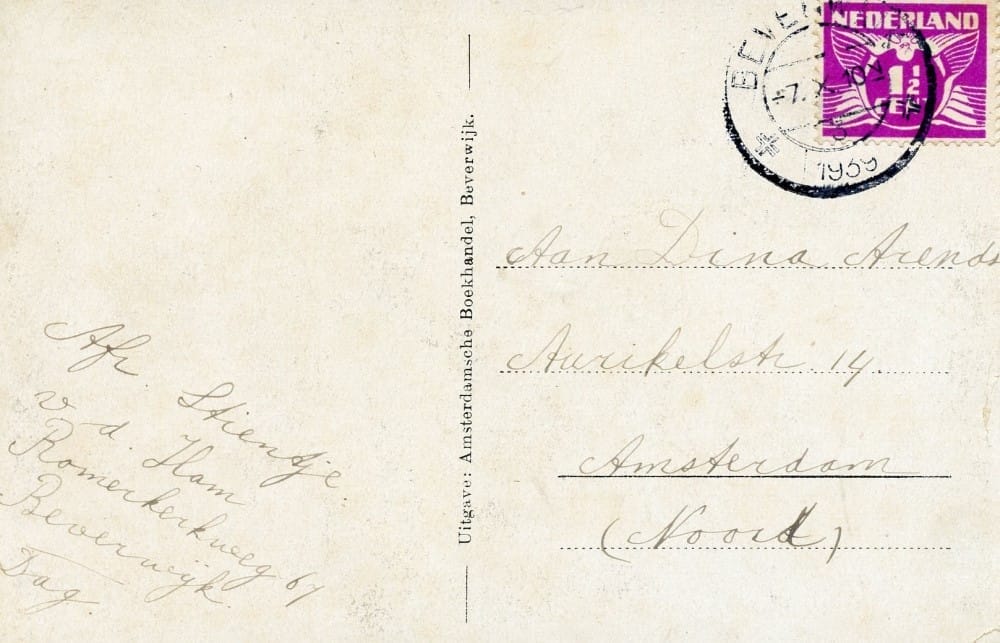 BEVERW
7. X. 10
1939
NEDERLAND
1½
CENT
Uitgave: Amsterdamsche Boekhandel, Beverwijk.
Aan Dina Arends
Aurikelstr. 14.
Amsterdam
(Noord)
Afz
Stientje
v. d. Ham
Romerkerkweg 61
Beverwijk.
Dag.